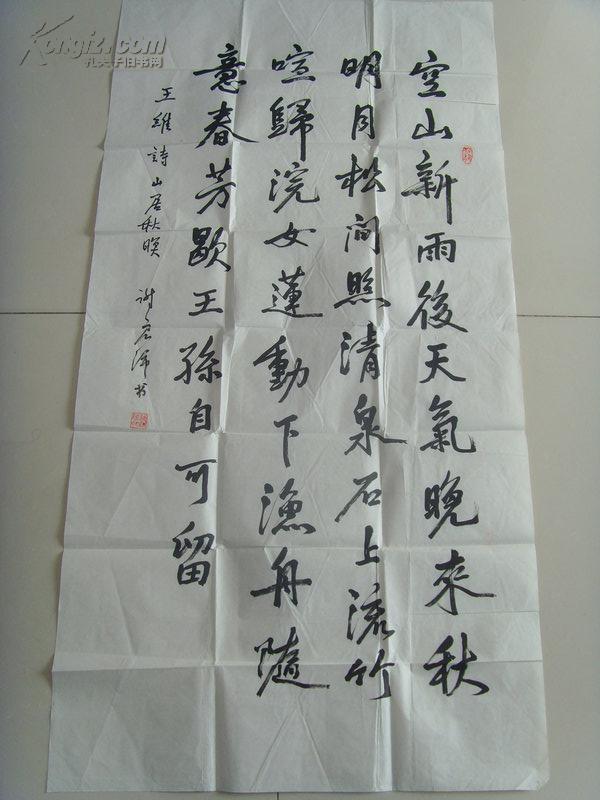 空山新雨後天氣晚來秋
明月松间照清泉石上流竹
喧歸浣女蓮動下漁舟隨
意春芳歇王孫自可留
王維詩山居秋暝 谢宏沛书
Kongfz.com
孔夫子旧书网